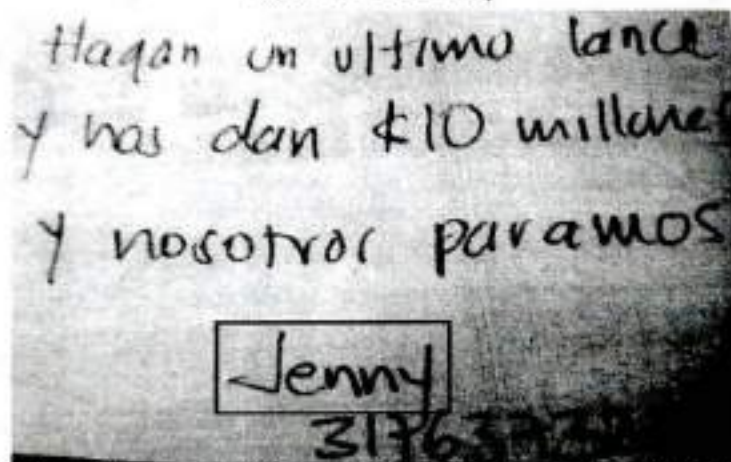 Hagan un ultimo lance
y nos dan $10 millones
y nosotros paramos
Jenny